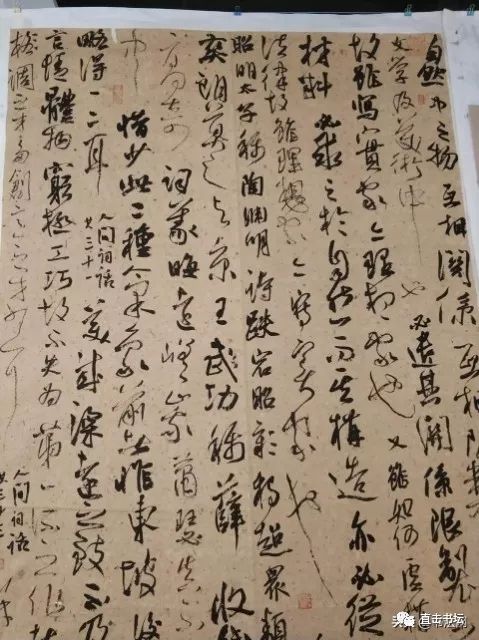 自然中之物互相關係互相限制
文學及美術中也必遺其關係限制
故雖寫實家亦理想家也又雖如何虛
材料必求之於自然而其構造亦必從
法律故雖理想家亦寫實家也
昭明太子稱陶淵明詩跌宕昭彰獨超眾類
爽朗莫之與京王武功稱薛收
韻高奇詞義晦遠嵯峨蕭瑟真不
惜少此二種氣象前者惟東坡後
略得一二耳人间词话美成深遠之致不及
言情體物窮極工巧故不失為第一流之作
格調之才多創意之才少耳
人间词话
直击书坛